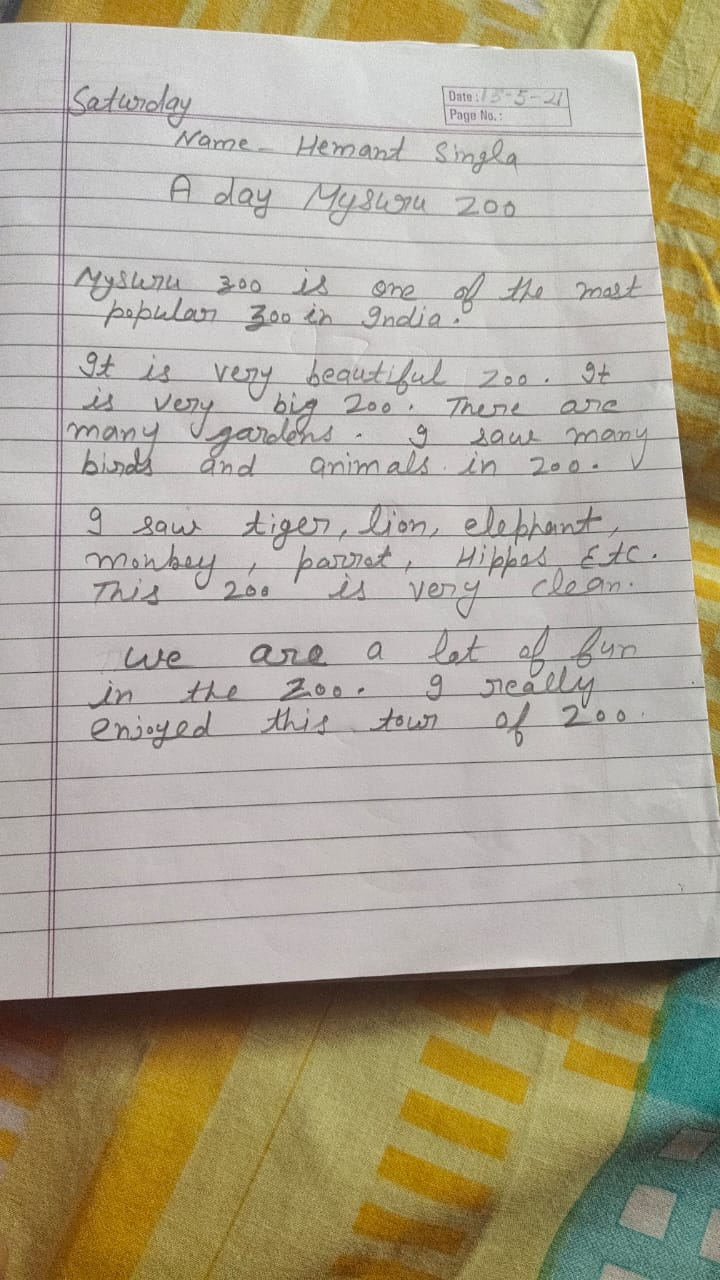 Saturday
Date: 15-5-21
Page No.:
Name - Hemant Singla
A day Mysuru zoo
Mysuru zoo is one of the most
popular zoo in India.
It is very beautiful zoo. It
is very big zoo. There are
many gardens. I saw many
birds and animals in zoo.
I saw tiger, lion, elephant,
monkey, parrot, Hippos Etc.
This zoo is very clean.
We are a lot of fun
in the zoo. I really
enjoyed this tour of zoo.